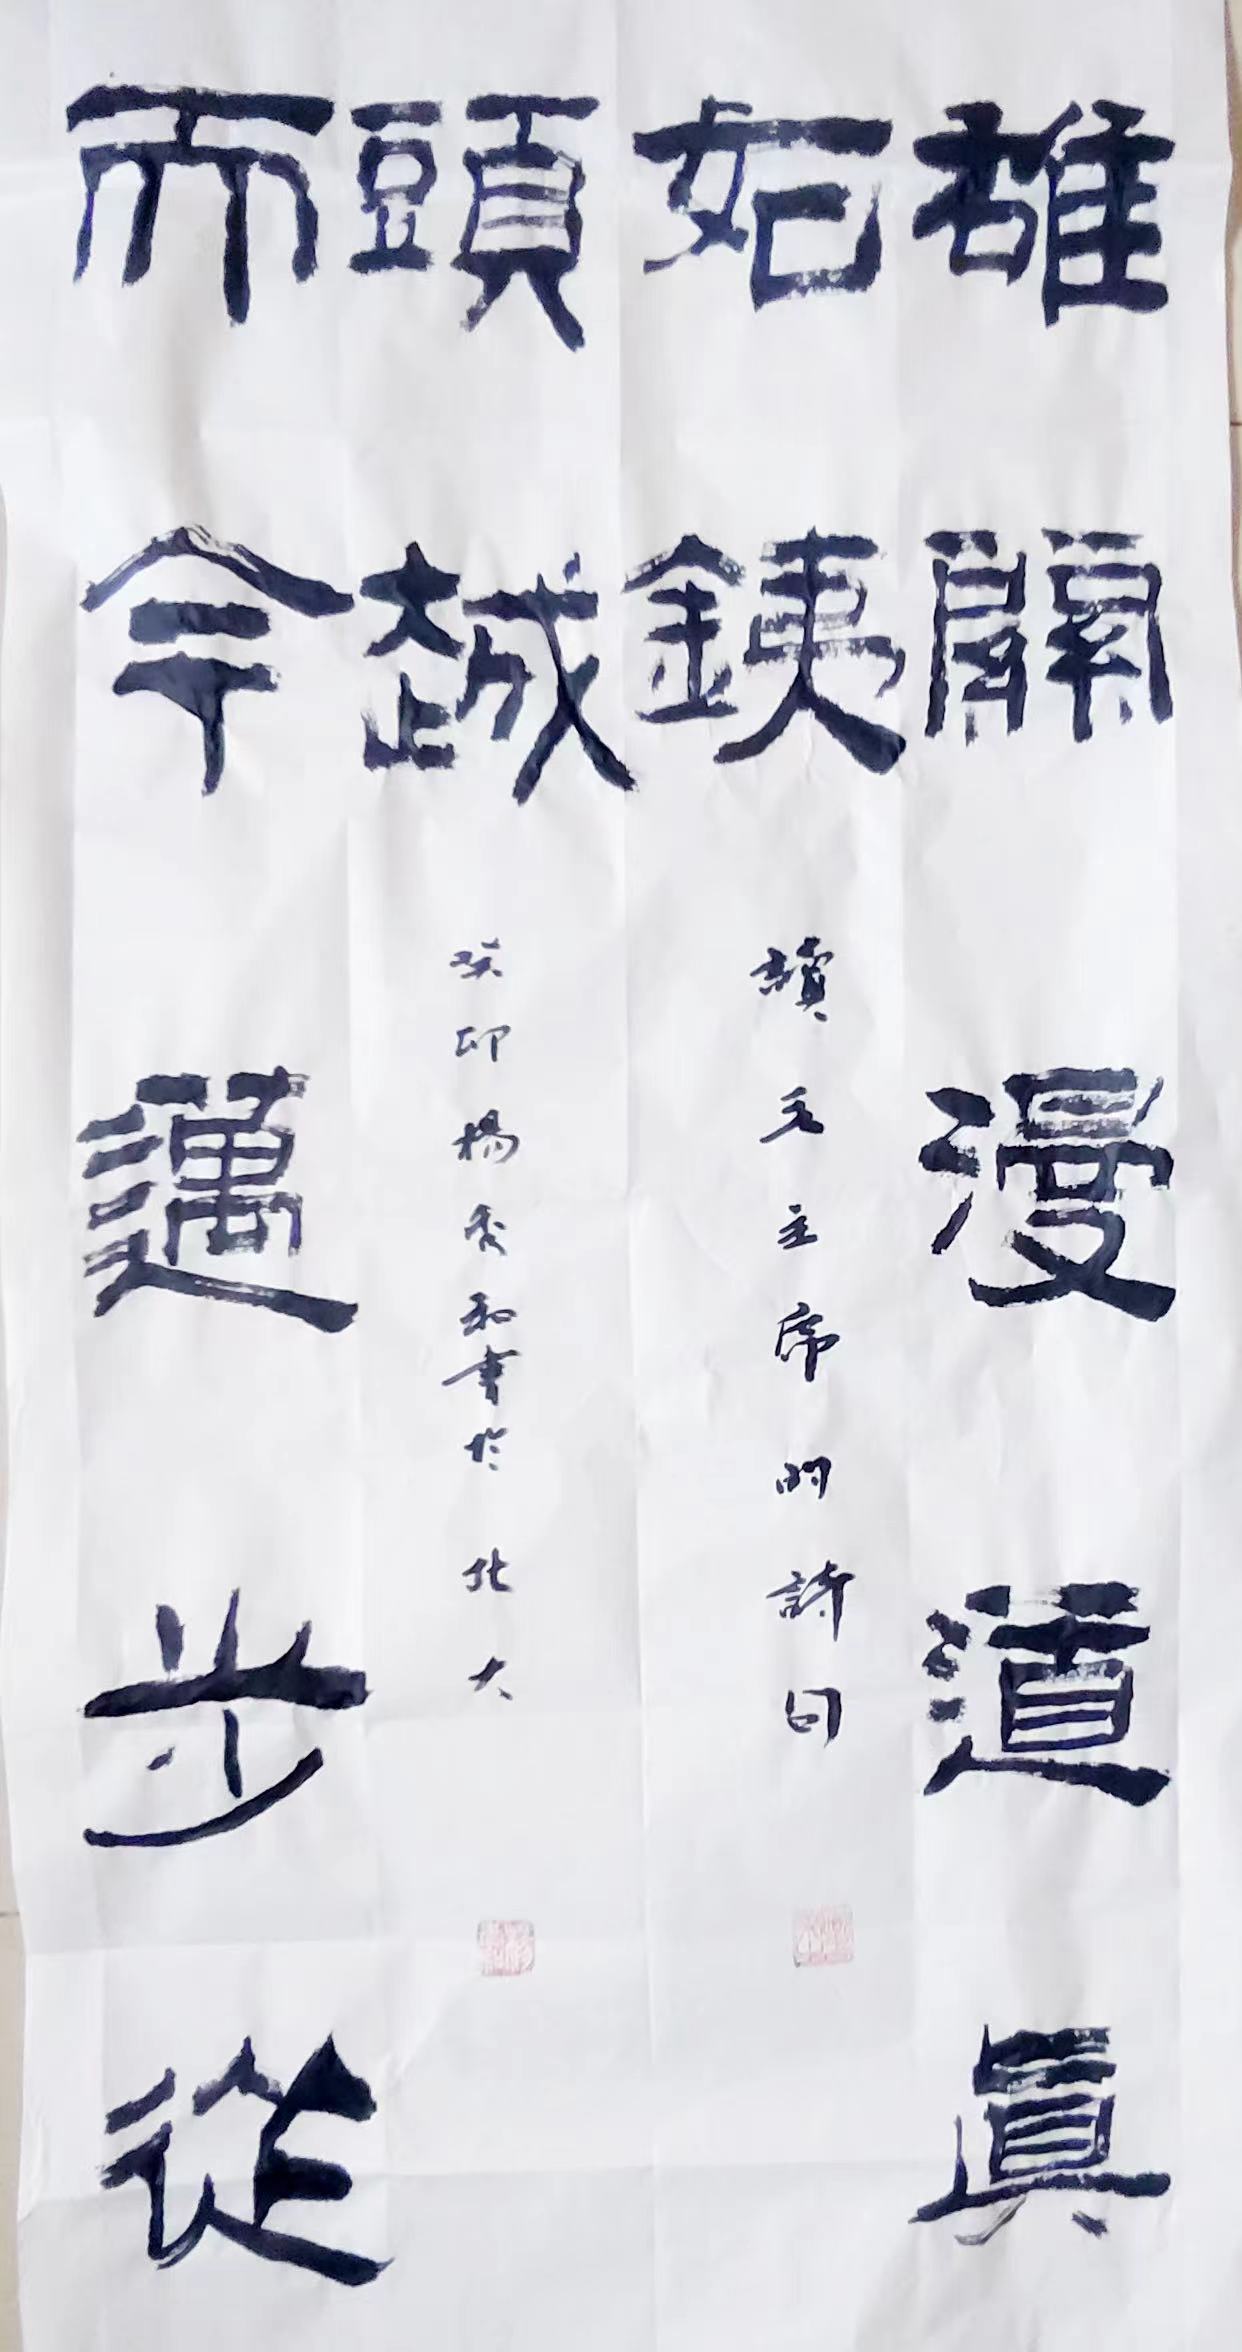 雄關漫道眞
如銕
而今邁步從
頭越
讀毛主席的詩句
癸卯楊秀和書於北大